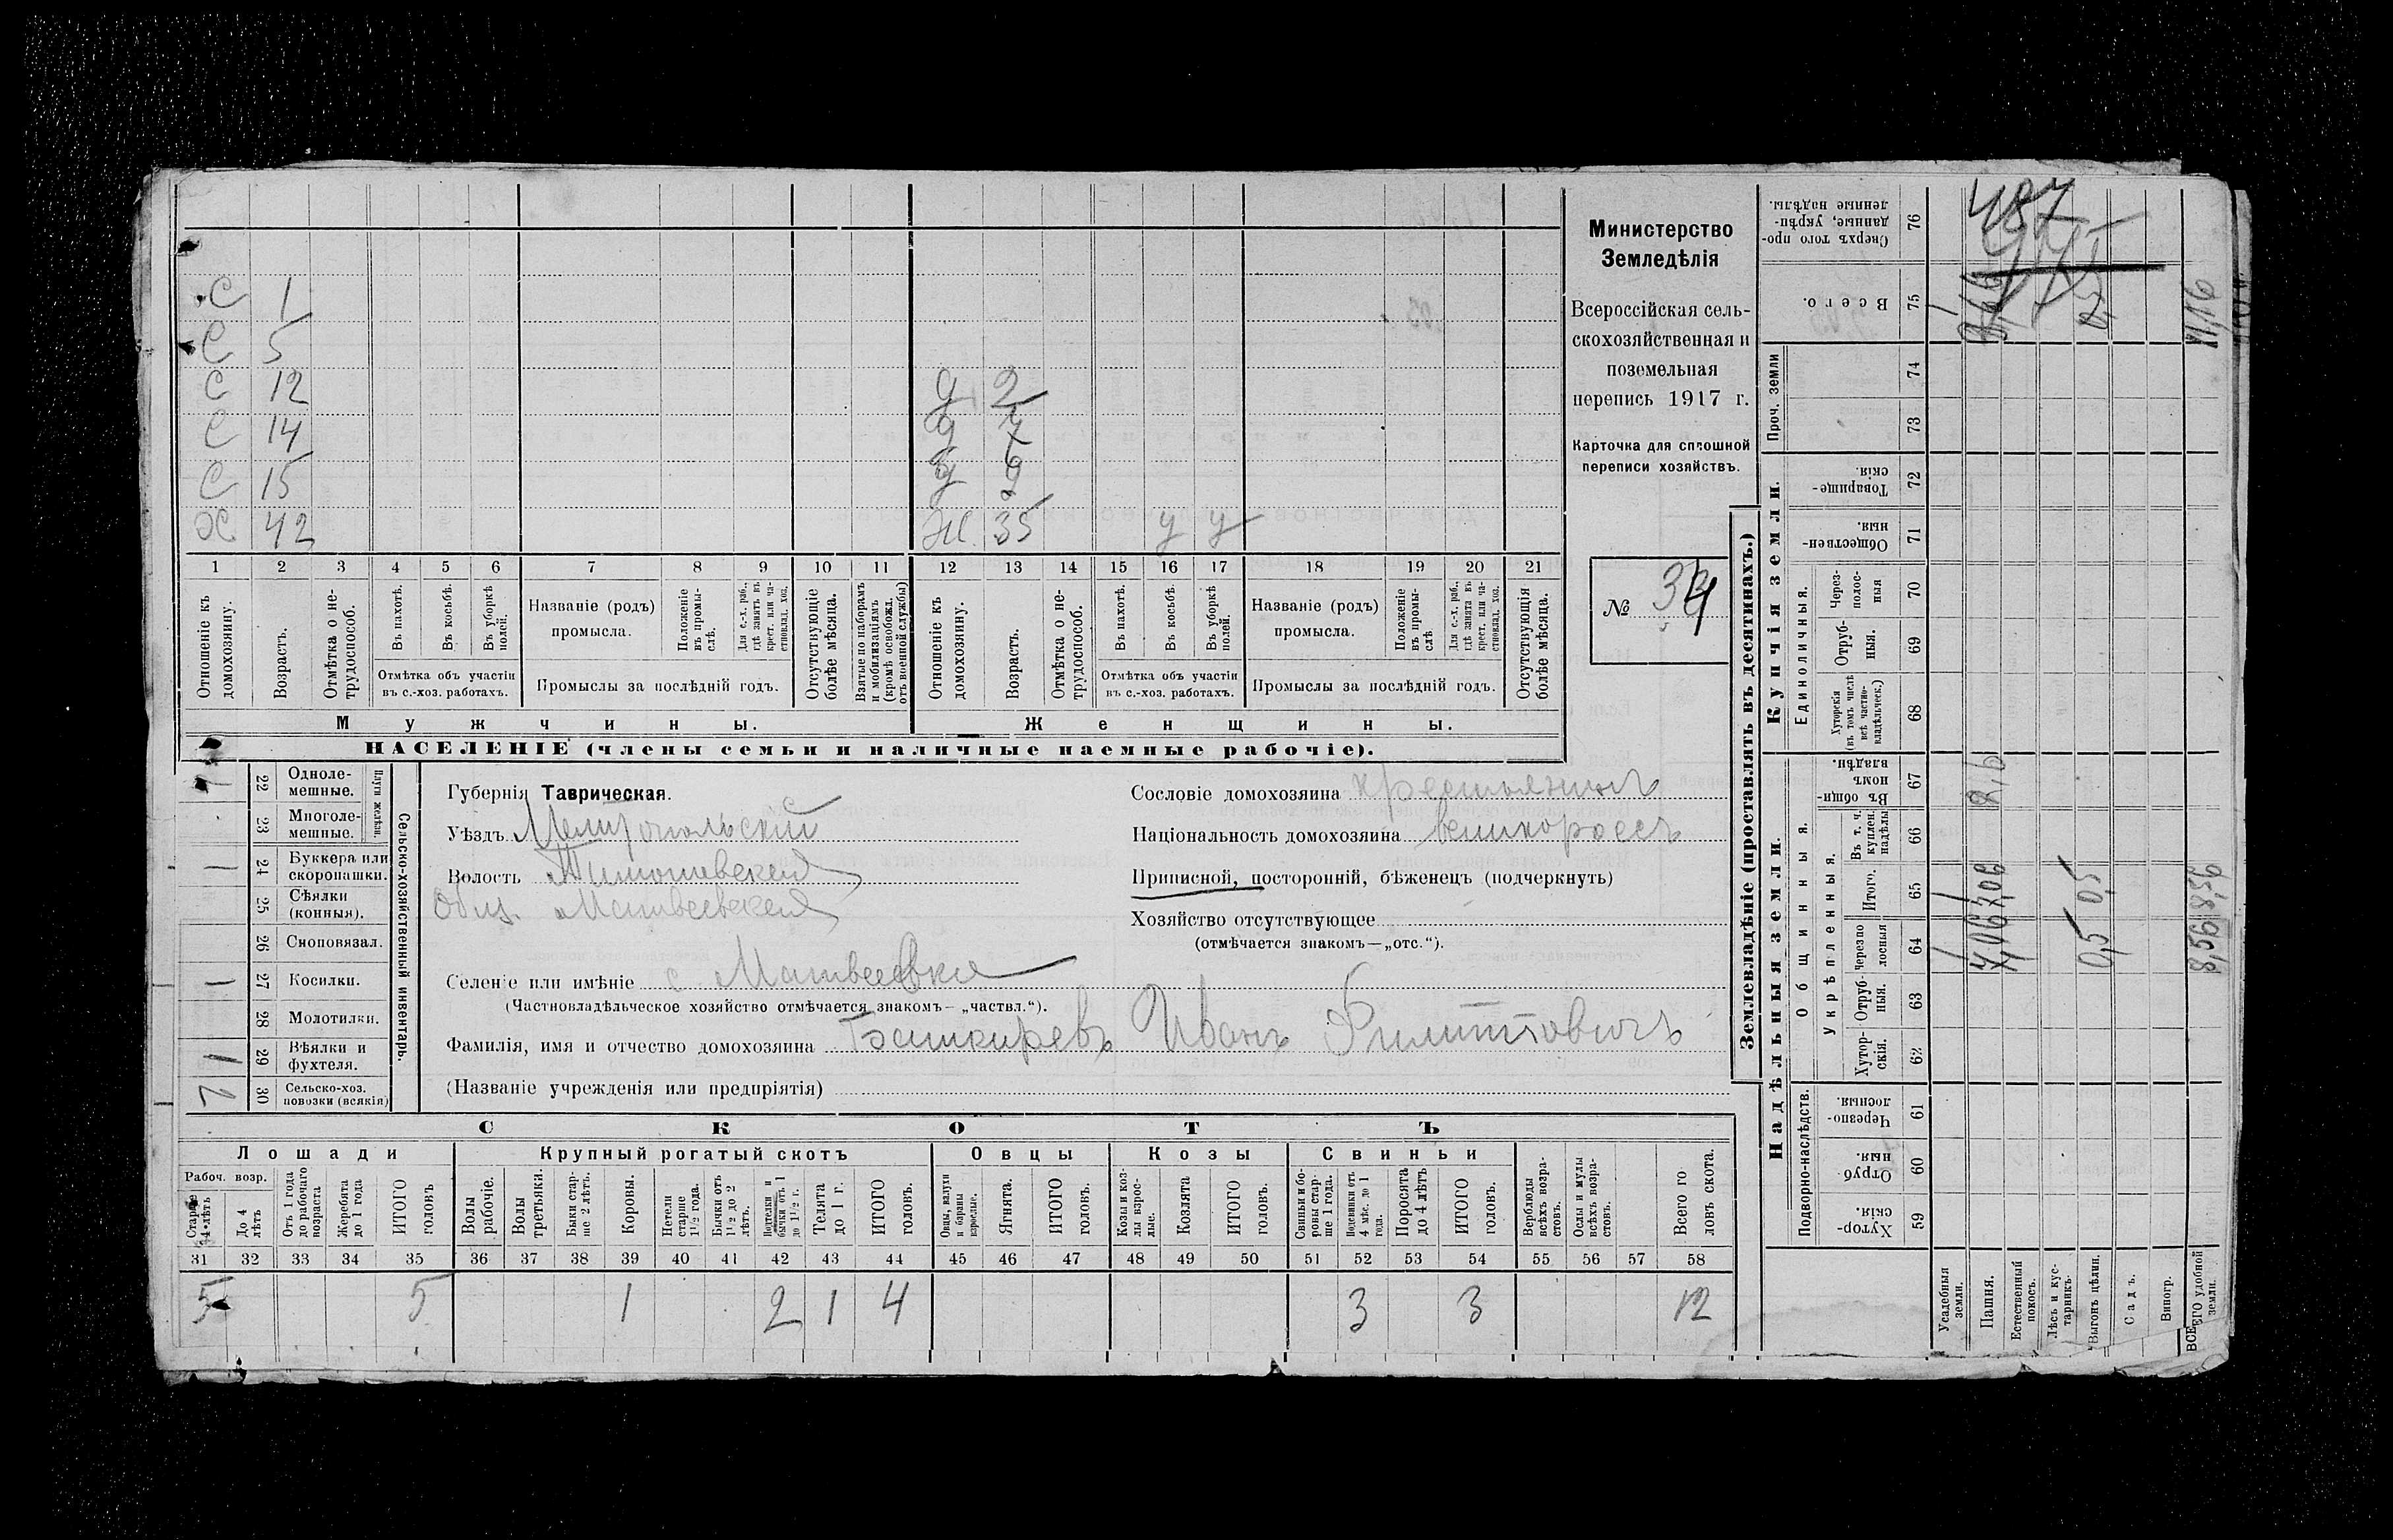 С 1
С 5
С 12 д 2
С 14 д 7
С 15 д 9
Х 42 Ж 35 у у
1 2 3 4 5 6 7 8 9 10 11 12 13 14 15 16 17 18 19 20 21
Отношеніе къ домохозяину.
Возрастъ.
Отмѣтка о не-трудоспособ.
Въ пахотѣ.
Въ косьбѣ.
Въ уборкѣ полей.
Отмѣтка объ участіи въ с.-хоз. работахъ.
Названіе (родъ) промысла.
Положеніе въ промы-слѣ.
Для с.-х. раб., гдѣ занятъ въ крест. или ча-стновлад. хоз.
Промыслы за послѣдній годъ.
Отсутствующіе болѣе мѣсяца.
Взятые по наборамъ и мобилизаціямъ (кромѣ освобожд. отъ военной службы)
Отношеніе къ домохозяину.
Возрастъ.
Отмѣтка о не-трудоспособ.
Въ пахотѣ.
Въ косьбѣ.
Въ уборкѣ полей.
Отмѣтка объ участіи въ с.-хоз. работахъ.
Названіе (родъ) промысла.
Положеніе въ промы-слѣ
Для с.-х. раб., гдѣ занята въ крест. или ча-стновлад. хоз.
Промыслы за послѣдній годъ.
Отсутствующія болѣе мѣсяца.
Мужчины.
Женщины.
НАСЕЛЕНІЕ (члены семьи и наличные наемные рабочіе).
Министерство
Земледѣлія
Всероссійская сель-
скохозяйственная и
поземельная
перепись 1917 г.
Карточка для сплошной
переписи хозяйствъ.
№ 34
22 Одноле-мешные.
23 Многоле-мешные.
Плуги желѣзн.
24 Буккера или скоропашки. 1
25 Сѣялки (конныя).
26 Сноповязал.
27 Косилки. 1
28 Молотилки.
29 Вѣялки и фухтеля. 1
30 Сельско-хоз. повозки (всякія)
Сельско-хозяйственный инвентарь.
Губернія Таврическая.
Уѣздъ Мелитопольскій
Волость Тимошевская
Общ. Матвеевская
Селеніе или имѣніе с. Матвеевка
(Частновладѣльческое хозяйство отмѣчается знакомъ— „частвл.“).
Фамилія, имя и отчество домохозяина Башкиревъ Иванъ Филипповичъ
(Названіе учрежденія или предпріятія)
Сословіе домохозяина крестьянинъ
Національность домохозяина великороссъ
Приписной, посторонній, бѣженецъ (подчеркнуть)
Хозяйство отсутствующее
(отмѣчается знакомъ—„отс.“).
СКОТЪ
Лошади
Крупный рогатый скотъ
Овцы
Козы
Свиньи
Рабоч. возр.
Старше 4 лѣтъ
До 4 лѣтъ
Отъ 1 года до рабочаго возраста
Жеребята до 1 года
ИТОГО головъ
Волы рабочіе.
Волы третьяки.
Быки стар-ше 2 лѣтъ.
Коровы.
Нетели старше 1½ года.
Бычки отъ 1½ до 2 лѣтъ.
бычки отъ 1 до 1½ г.
Телята до 1 г.
ИТОГО головъ.
Овцы, валухи и бараны взрослые.
Ягнята.
ИТОГО головъ.
Козы и коз-лы взрос-лые.
Козлята
ИТОГО головъ.
Свиньи и бо-ровы стар-ше 1 года.
Подсвинки отъ 4 мѣс. до 1 года.
Поросята до 4 лѣтъ
ИТОГО головъ.
Верблюды всѣхъ возра-стовъ.
Ослы и мулы всѣхъ возра-стовъ.
Всего го ловъ скота.
31 32 33 34 35 36 37 38 39 40 41 42 43 44 45 46 47 48 49 50 51 52 53 54 55 56 57 58
5 5 1 2 1 4 3 3 12
Землевладѣніе (проставлять въ десятинахъ.)
Надѣльныя земли.
Купчія земли.
Проч. земли
Подворно-наслѣдств.
Общинныя.
Укрѣпленныя.
Единоличныя.
76 Сверхъ того про-данные, укрѣп-ленные надѣлы.
75 Всего.
74
73
72 Товарище-скія.
71 Обществен-ныя.
70 Через-полос-ныя
69 Отруб-ныя.
68 Хуторскія (въ томъ числѣ всѣ частно-владѣльческ.)
67 Въ общин-номъ владѣн.
66 Въ т. ч. куплен. надѣлы
65 Итого.
64 Черезпо лосныя
63 Отруб-ныя.
62 Хутор-скія.
61 Черезпо-лосныя.
60 Отруб ныя.
59 Хутор-скія.
Усадебныя земли.
Пашня.
Естественный покосъ.
Лѣсъ и кус-тарникъ.
Выгонъ цѣлин.
Садъ.
Виногр.
ВСЕГО удобной земли.
487
11,16
7,06 7,06
0,5 0,5
8,56 8,56